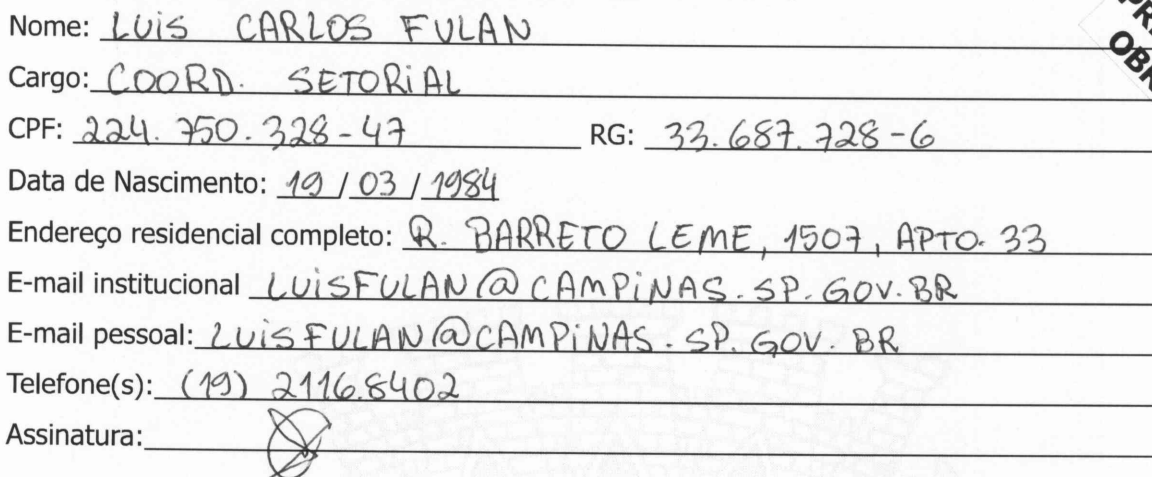 Nome: LUIS CARLOS FULAN
Cargo: COORD. SETORIAL
CPF: 224.750.328-47 RG: 33.687.728-6
Data de Nascimento: 19 / 03 / 1984
Endereço residencial completo: R. BARRETO LEME, 1507, APTO. 33
E-mail institucional LUISFULAN@CAMPINAS.SP.GOV.BR
E-mail pessoal: LUISFULAN@CAMPINAS.SP.GOV.BR
Telefone(s): (19) 2116.8402
Assinatura: